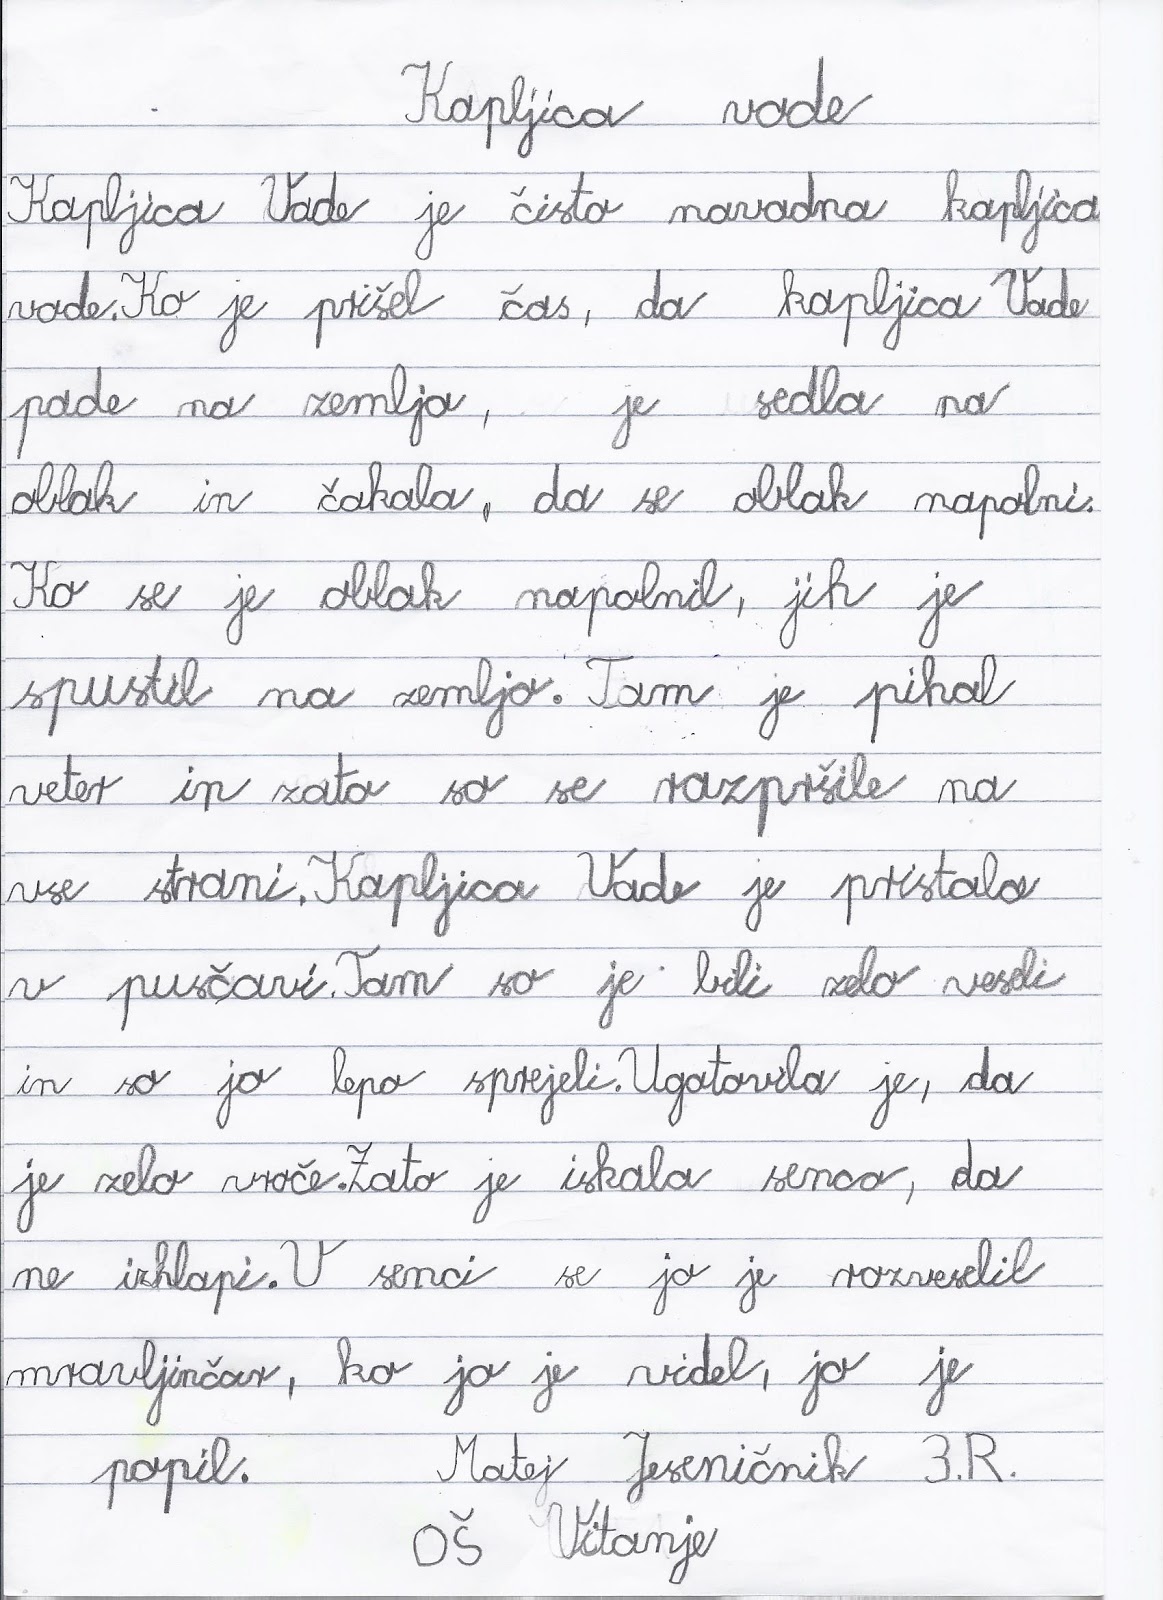 Kapljica vode
Kapljica Vode je čisto navadna kapljica
vode. Ko je prišel čas, da kapljica Vode
pade na zemljo, je sedla na
oblak in čakala, da se oblak napolni.
Ko se je oblak napolnil, jih je
spustil na zemljo. Tam je pihal
veter in zato so se razpršile na
vse strani. Kapljica Vode je pristala
v puščavi. Tam so je bili zelo veseli
in so jo lepo sprejeli. Ugotovila je, da
je zelo vroče. Zato je iskala senco, da
ne izhlapi. V senci se jo je razveselil
mravljinčar, ko jo je videl, jo je
popil. Matej Jeseničnik 3.R.
OŠ Vitanje